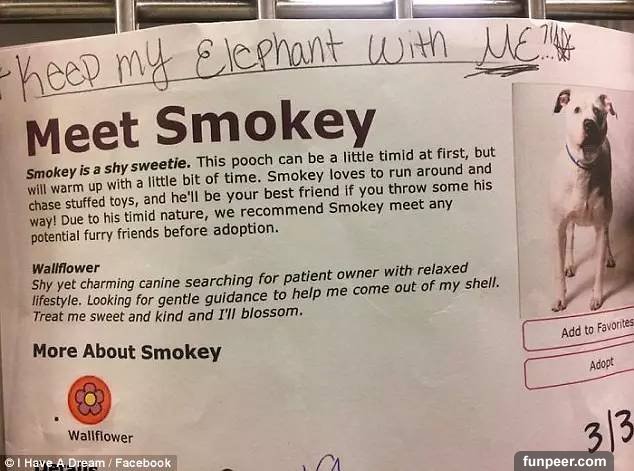 * Keep my Elephant with ME...!!
Meet Smokey
Smokey is a shy sweetie. This pooch can be a little timid at first, but
will warm up with a little bit of time. Smokey loves to run around and
chase stuffed toys, and he'll be your best friend if you throw some his
way! Due to his timid nature, we recommend Smokey meet any
potential furry friends before adoption.
Wallflower
Shy yet charming canine searching for patient owner with relaxed
lifestyle. Looking for gentle guidance to help me come out of my shell.
Treat me sweet and kind and I'll blossom.
Add to Favorites
Adopt
More About Smokey
Wallflower
3/3
© I Have A Dream / Facebook
funpeer.com